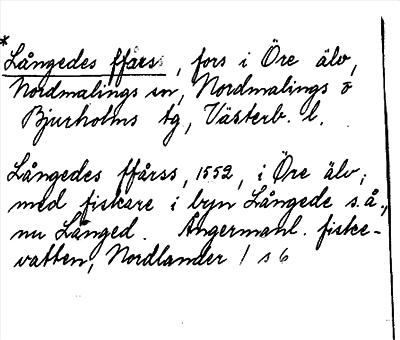 *
Långedes ffårss, fors i Öre älv,
Nordmalings sn, Nordmalings o
Bjurholms tg, Västerb. l.
Långedes ffårss, 1552, i Öre älv;
med fiskare i byn Långede s.å.,
nu Långed. Ångermanl. fiske-
vatten, Nordlander / s 6